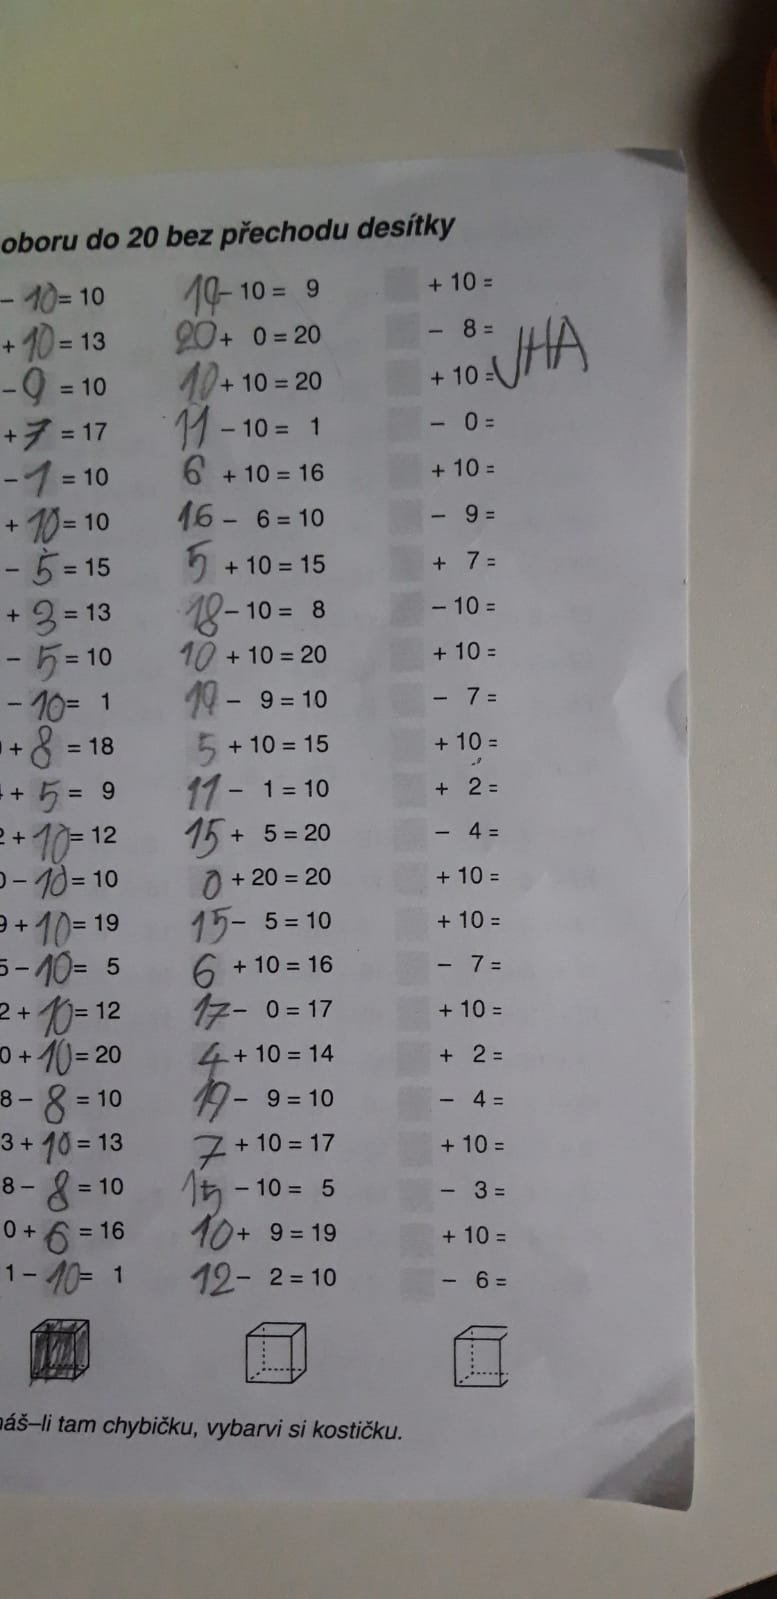 oboru do 20 bez přechodu desítky
- 10 = 10 19 - 10 = 9 + 10 =
+ 10 = 13 20 + 0 = 20 - 8 =
- 9 = 10 10 + 10 = 20 + 10 = UHA
+ 7 = 17 11 - 10 = 1 - 0 =
- 1 = 10 6 + 10 = 16 + 10 =
+ 10 = 10 16 - 6 = 10 - 9 =
- 5 = 15 5 + 10 = 15 + 7 =
+ 3 = 13 18 - 10 = 8 - 10 =
- 5 = 10 10 + 10 = 20 + 10 =
- 10 = 1 19 - 9 = 10 - 7 =
+ 8 = 18 5 + 10 = 15 + 10 =
+ 5 = 9 11 - 1 = 10 + 2 =
2 + 10 = 12 15 + 5 = 20 - 4 =
0 - 10 = 10 0 + 20 = 20 + 10 =
9 + 10 = 19 15 - 5 = 10 + 10 =
5 - 10 = 5 6 + 10 = 16 - 7 =
2 + 10 = 12 17 - 0 = 17 + 10 =
0 + 10 = 20 4 + 10 = 14 + 2 =
8 - 8 = 10 19 - 9 = 10 - 4 =
3 + 10 = 13 7 + 10 = 17 + 10 =
8 - 8 = 10 15 - 10 = 5 - 3 =
0 + 6 = 16 10 + 9 = 19 + 10 =
1 - 10 = 1 12 - 2 = 10 - 6 =
náš–li tam chybičku, vybarvi si kostičku.